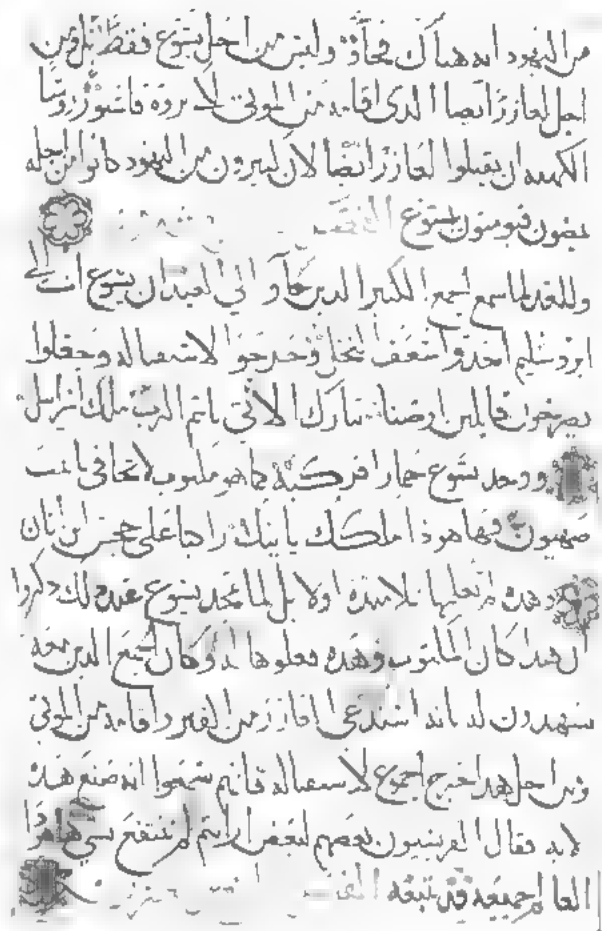 من اليهود انه هناك فجآوا وليس من اجل يسوع فقط بل ومن
اجل لعازر ايضا الذي اقامه من الموتى لا يروه فاشور روسا
الكهنه ان يقتلوا لعازر ايضا لان كثيرون من اليهود كانوا من اجله
يمضون فيومنون بيسوع
وللغد لما سمع الجمع الكثير الذين جآوا الي العيد ان يسوع ات الي
ايروشليم اخذوا سعف النخل وخرجوا لاستقباله وجعلوا
يصرخون قايلين اوصنا مبارك الاتي باسم الرب ملك اسراييل
ووجد يسوع حمارا فركبه كما هو مكتوب لا تخافي يا بنت
صهيون فها هوذا ملكك ياتيك راكبا على جحش ابن اتان
وهذه لم يعلمها تلاميذه اولا بل لما تمجد يسوع عند ذلك ذكروا
ان هذا كان المكتوب وهذه فعلوها له وكان الجمع الذين معه
يشهدون له بانه استدعى لعازر من القبر واقامه من الموتى
ومن اجل هذا خرج الجموع لاستقباله فانهم سمعوا انه صنع هذه
الايه فقال الفريسيون بعضهم لبعض ارايتم لم ننتفع بشي ها هوذا
العالم جميعه قد تبعه